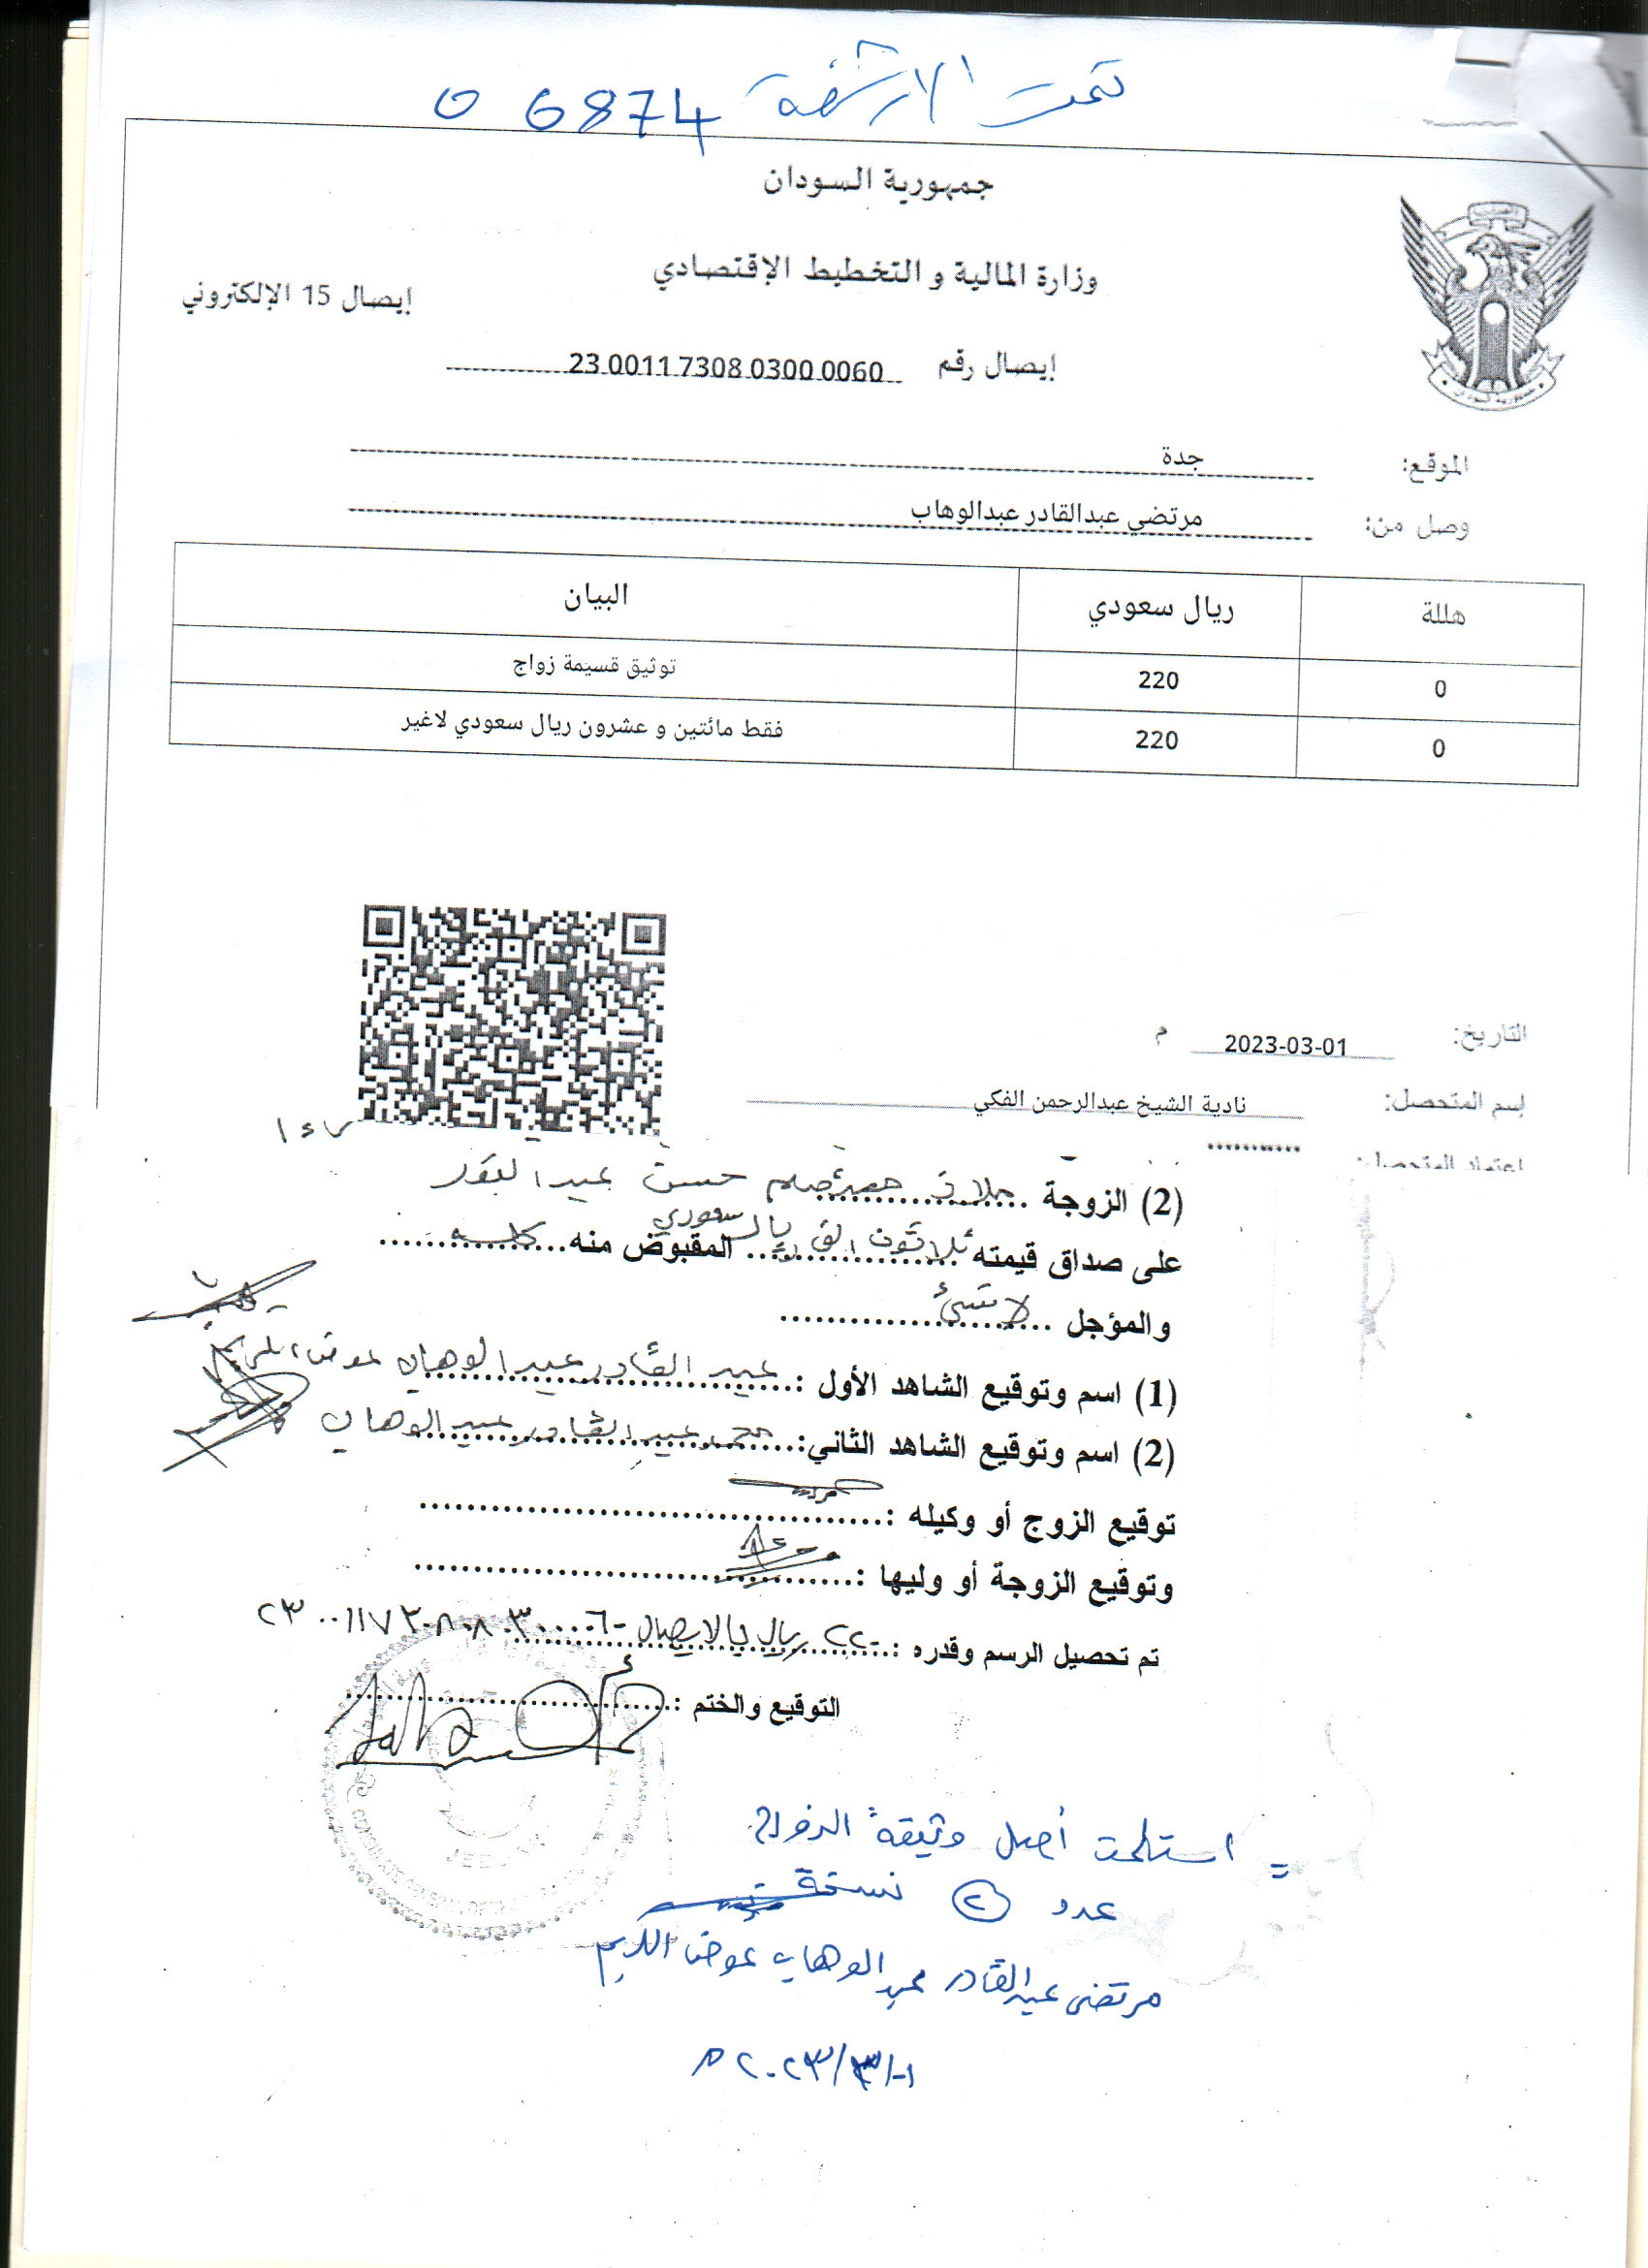 تمت الارشفة 6874 0
جمهورية السودان
وزارة المالية و التخطيط الإقتصادي
إيصال 15 الإلكتروني
إيصال رقم 23 0011 7308 0300 0060
الموقع: جدة
وصل من: مرتضي عبدالقادر عبدالوهاب
هللة ريال سعودي البيان
0 220 توثيق قسيمة زواج
0 220 فقط مائتين و عشرون ريال سعودي لاغير
التاريخ: 2023-03-01 م
إسم المتحصل: نادية الشيخ عبدالرحمن الفكي
إعتماد المتحصل: ***********
(2) الزوجة حسن عبد
على صداق قيمته ثلاثون الف ريال سعودي المقبوض منه كله
والمؤجل لا شئ
(1) اسم وتوقيع الشاهد الأول : عبد القادر عبد الوهاب عوض الكريم
(2) اسم وتوقيع الشاهد الثاني: محمد عبد القادر عبد الوهاب
توقيع الزوج أو وكيله :
وتوقيع الزوجة أو وليها :
تم تحصيل الرسم وقدره : ٢٢٠ ريال بالايصال ٢٣٠٠١١٧٣٠٨٠٣٠٠٠٠٦٠
التوقيع والختم :
JEDDAH
= استلمت أصل وثيقة الزواج
عدد ② نسخة
مرتضى عبدالقادر عبدالوهاب عوض الكريم
٠١/٣/٢٠٢٣ م